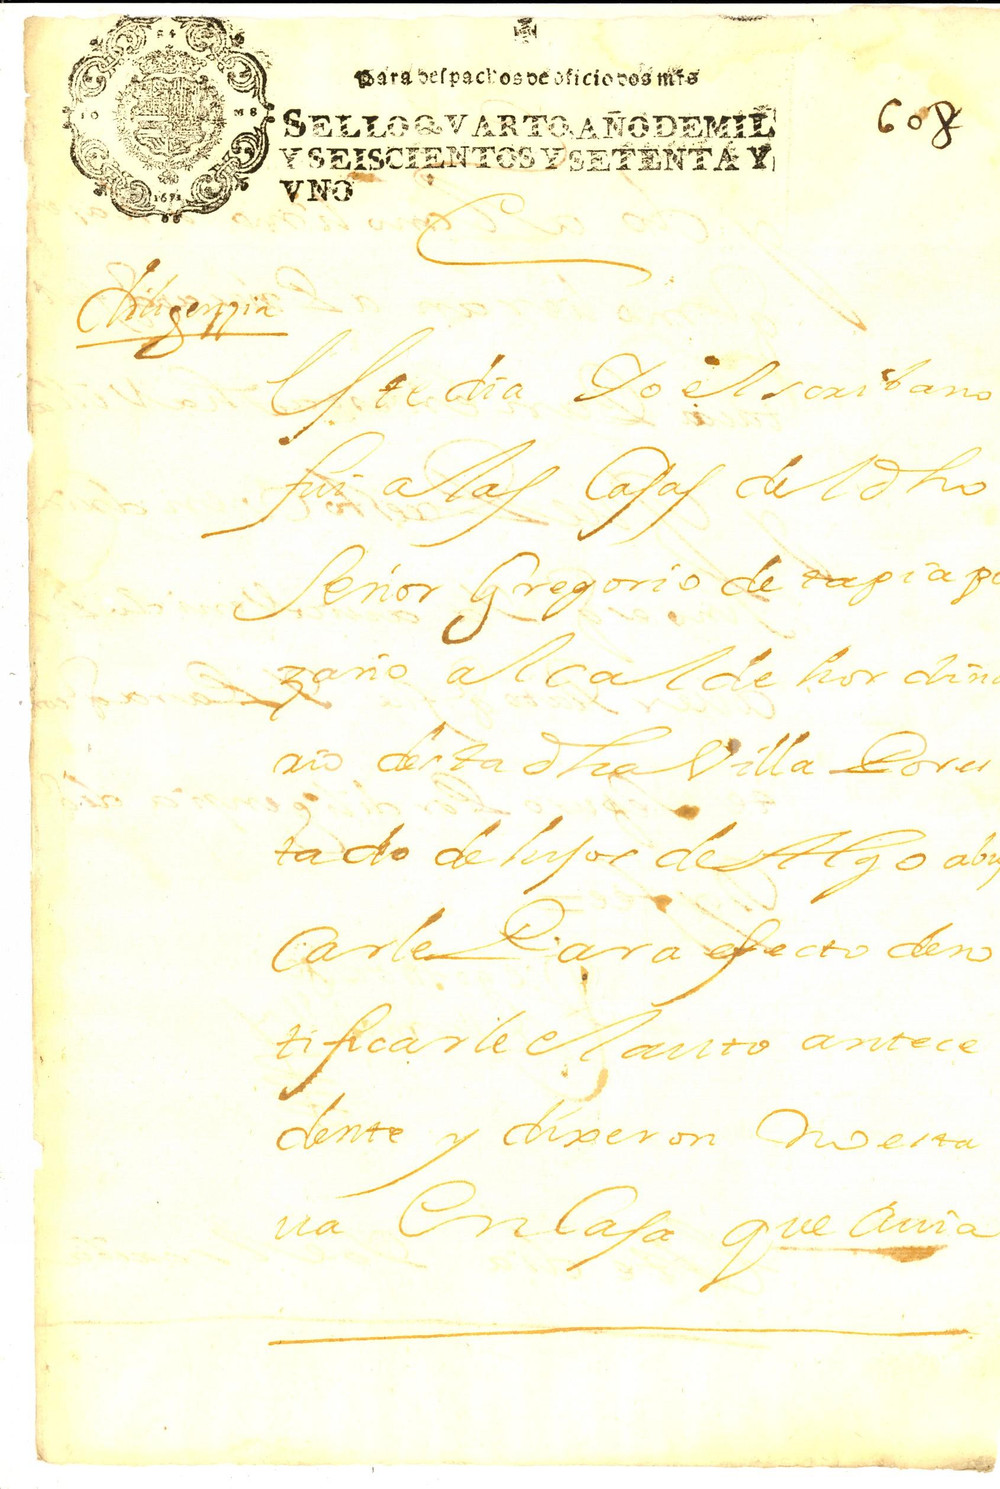 Para despachos de oficio dos mrs
608
SELLO QVARTO, AÑO DE MIL
Y SEISCIENTOS Y SETENTA Y
VNO
1671
Diligenzia
Este dia Yo el scribano
fui a las Casas del dho
Señor Gregorio de tapia pi
zario alcalde hordina
rio desta dha Villa Por es
tado de hijos de Algo a bus
carle Para efecto de no
tificarle el auto antece
dente y dixeron No esta
ua En Casa que auia